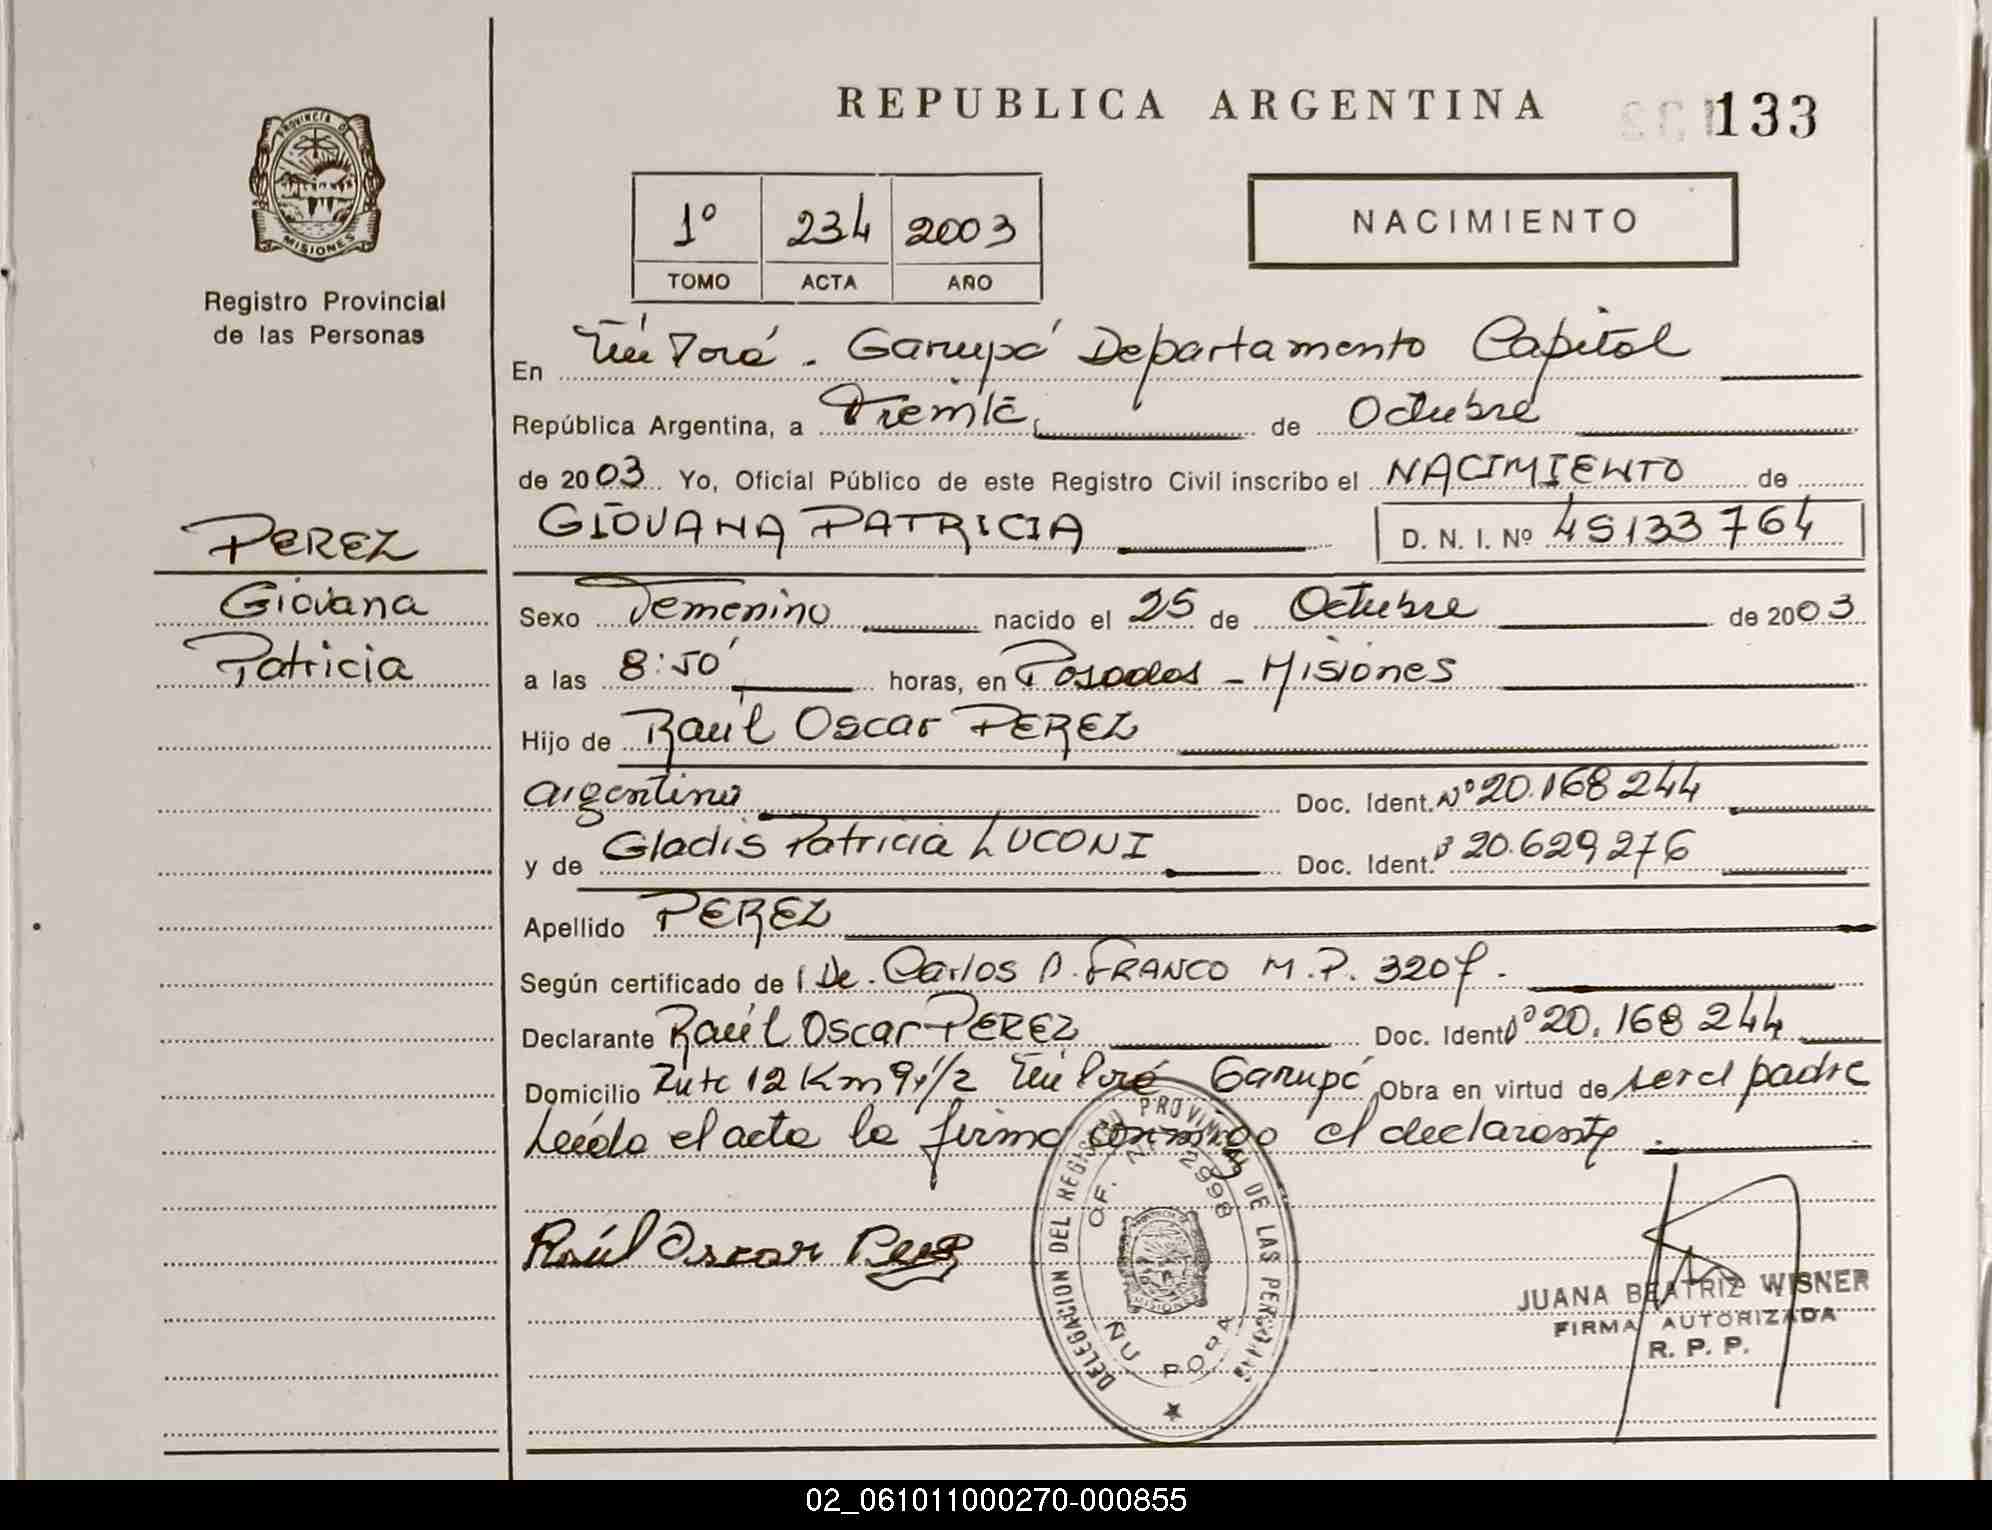 REPUBLICA ARGENTINA
133
PROVINCIA DE
MISIONES
Registro Provincial
de las Personas
1º 234 2003
TOMO ACTA AÑO
NACIMIENTO
En Ñu Porá - Garupá Departamento Capital
República Argentina, a Treinta de Octubre
de 2003 Yo, Oficial Público de este Registro Civil inscribo el NACIMIENTO de
GIOVANA PATRICIA D. N. I. Nº 45133764
PEREZ
Giovana
Patricia
Sexo Femenino nacido el 25 de Octubre de 2003
a las 8:50' horas, en Posadas - Misiones
Hijo de Raúl Oscar PEREZ
argentino Doc. Ident. Nº 20.168244
y de Gladis Patricia LUCONI Doc. Ident. 20.629276
Apellido PEREZ
Según certificado de Carlos FRANCO M.P. 3207.
Declarante Raúl Oscar PEREZ Doc. Ident Nº 20.168244
Domicilio Ruta 12 Km 9 y 1/2 Ñu Porá Garupá Obra en virtud de ser el padre
Leída el acta la firma conmigo el declarante.
Raúl Oscar Perez
DELEGACION DEL REGISTRO PROVINCIAL DE LAS PERSONAS
OF. 2998
ÑU PORA
MISIONES
JUANA BEATRIZ WISNER
FIRMA AUTORIZADA
R. P. P.
02_061011000270-000855